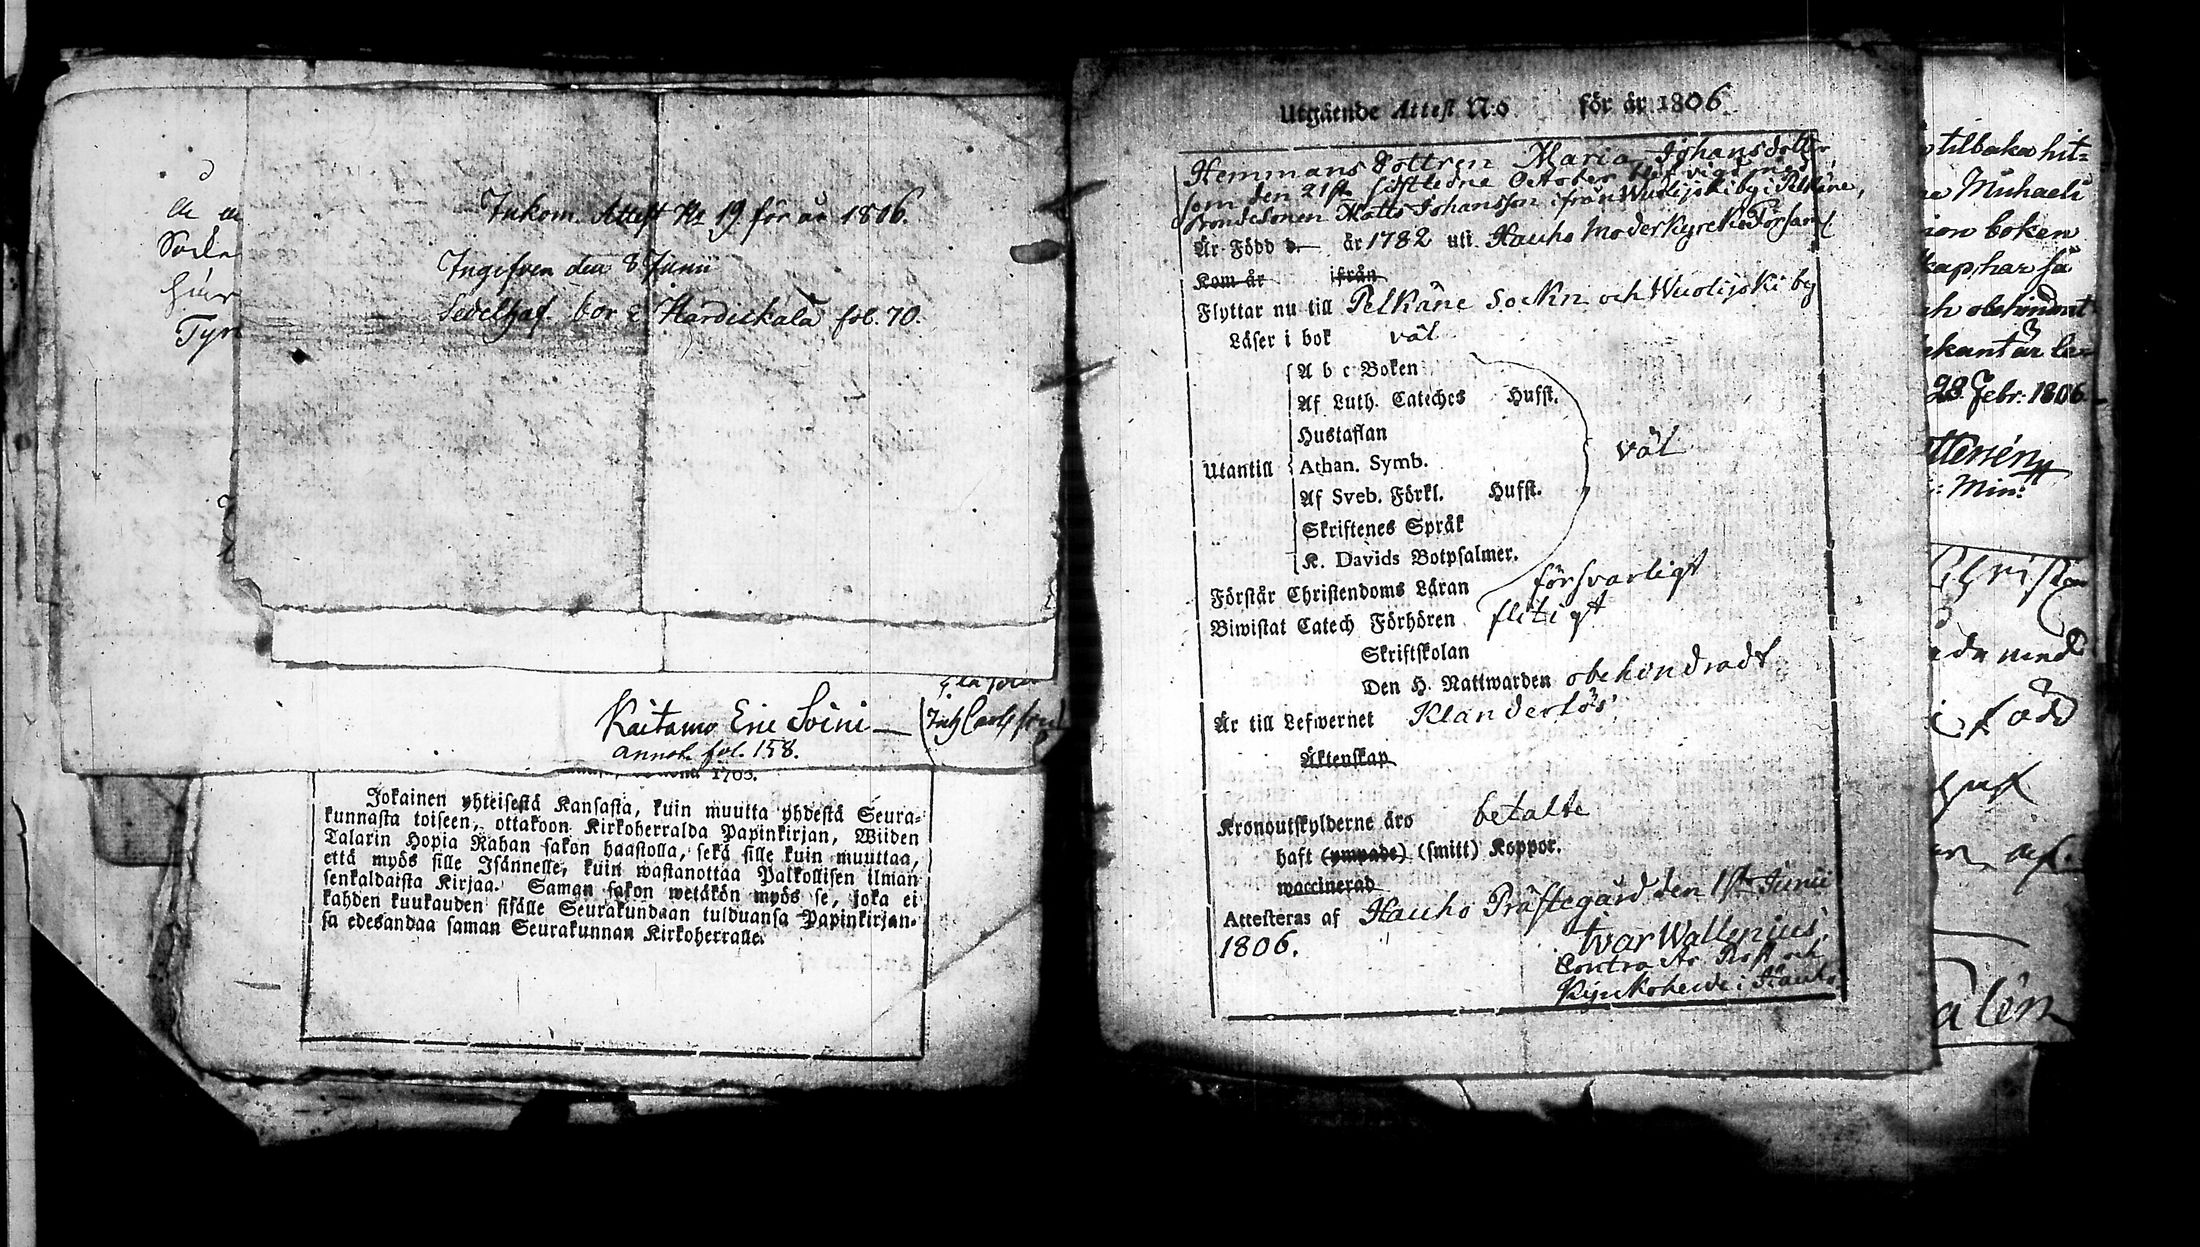 Inkom. Attest No 19 för år 1806.
Ingifven den 8 Junii
Sedelhaf. bor i Hardickala fol. 70.
Kaitamo Eric Soini
annot. fol. 158.
Jokainen yhteisestä Kansasta, kuin muutta yhdestä Seura-
kunnasta toiseen, ottakoon Kirkoherralda Papinkirjan, Wiiden
Talarin Hopia Rahan sakon haastolla, sekä sille kuin muuttaa,
että myös sille Isännelle, kuin wastanottaa Palkollisen ilman
senkaldaista Kirjaa. Saman sakon wetäkön myös se, joka ei
kahden kuukauden sisälle Seurakundaan tulduansa Papinkirjan-
sa edesandaa saman Seurakunnan Kirkoherralle.
Utgående Attest N:o för år 1806
Hemmans Dottren Maria Johansdotter
som den 21sta sistledne October blef vigd med
Bondesonen Matts Johansson ifrån Wuolijoki by i Pelkäne,
Är Född d. år 1782 uti Hauho Moderkyrko Församl
Kom år ifrån
Flyttar nu till Pelkäne Sockn och Wuolijoki by
Läser i bok väl
A b c Boken
Af Luth. Cateches Hufst.
Hustaflan
Utantill Athan. Symb. väl
Af Sveb. Förkl. Hufst.
Skriftenes Språk
K. Davids Botpsalmer.
Förstår Christendoms Läran försvarligt
Biwistat Catech Förhören flitigt
Skriftskolan
Den H. Nattwarden obehindradt
Är till Lefwernet Klanderlös
Äktenskap
Kronoutskylderne äro betalte
haft (ympade) (smitt) Koppor.
waccinerad
Attesteras af Hauho Prästegård den 1sta Junii
1806.
Ivar Wallenius
Contra Prost och
Kyrkoherde i Hauho
tilbaka hit=
Michaeli
boken
har så
obehindrat
28 Febr. 1806
Min:
med
född